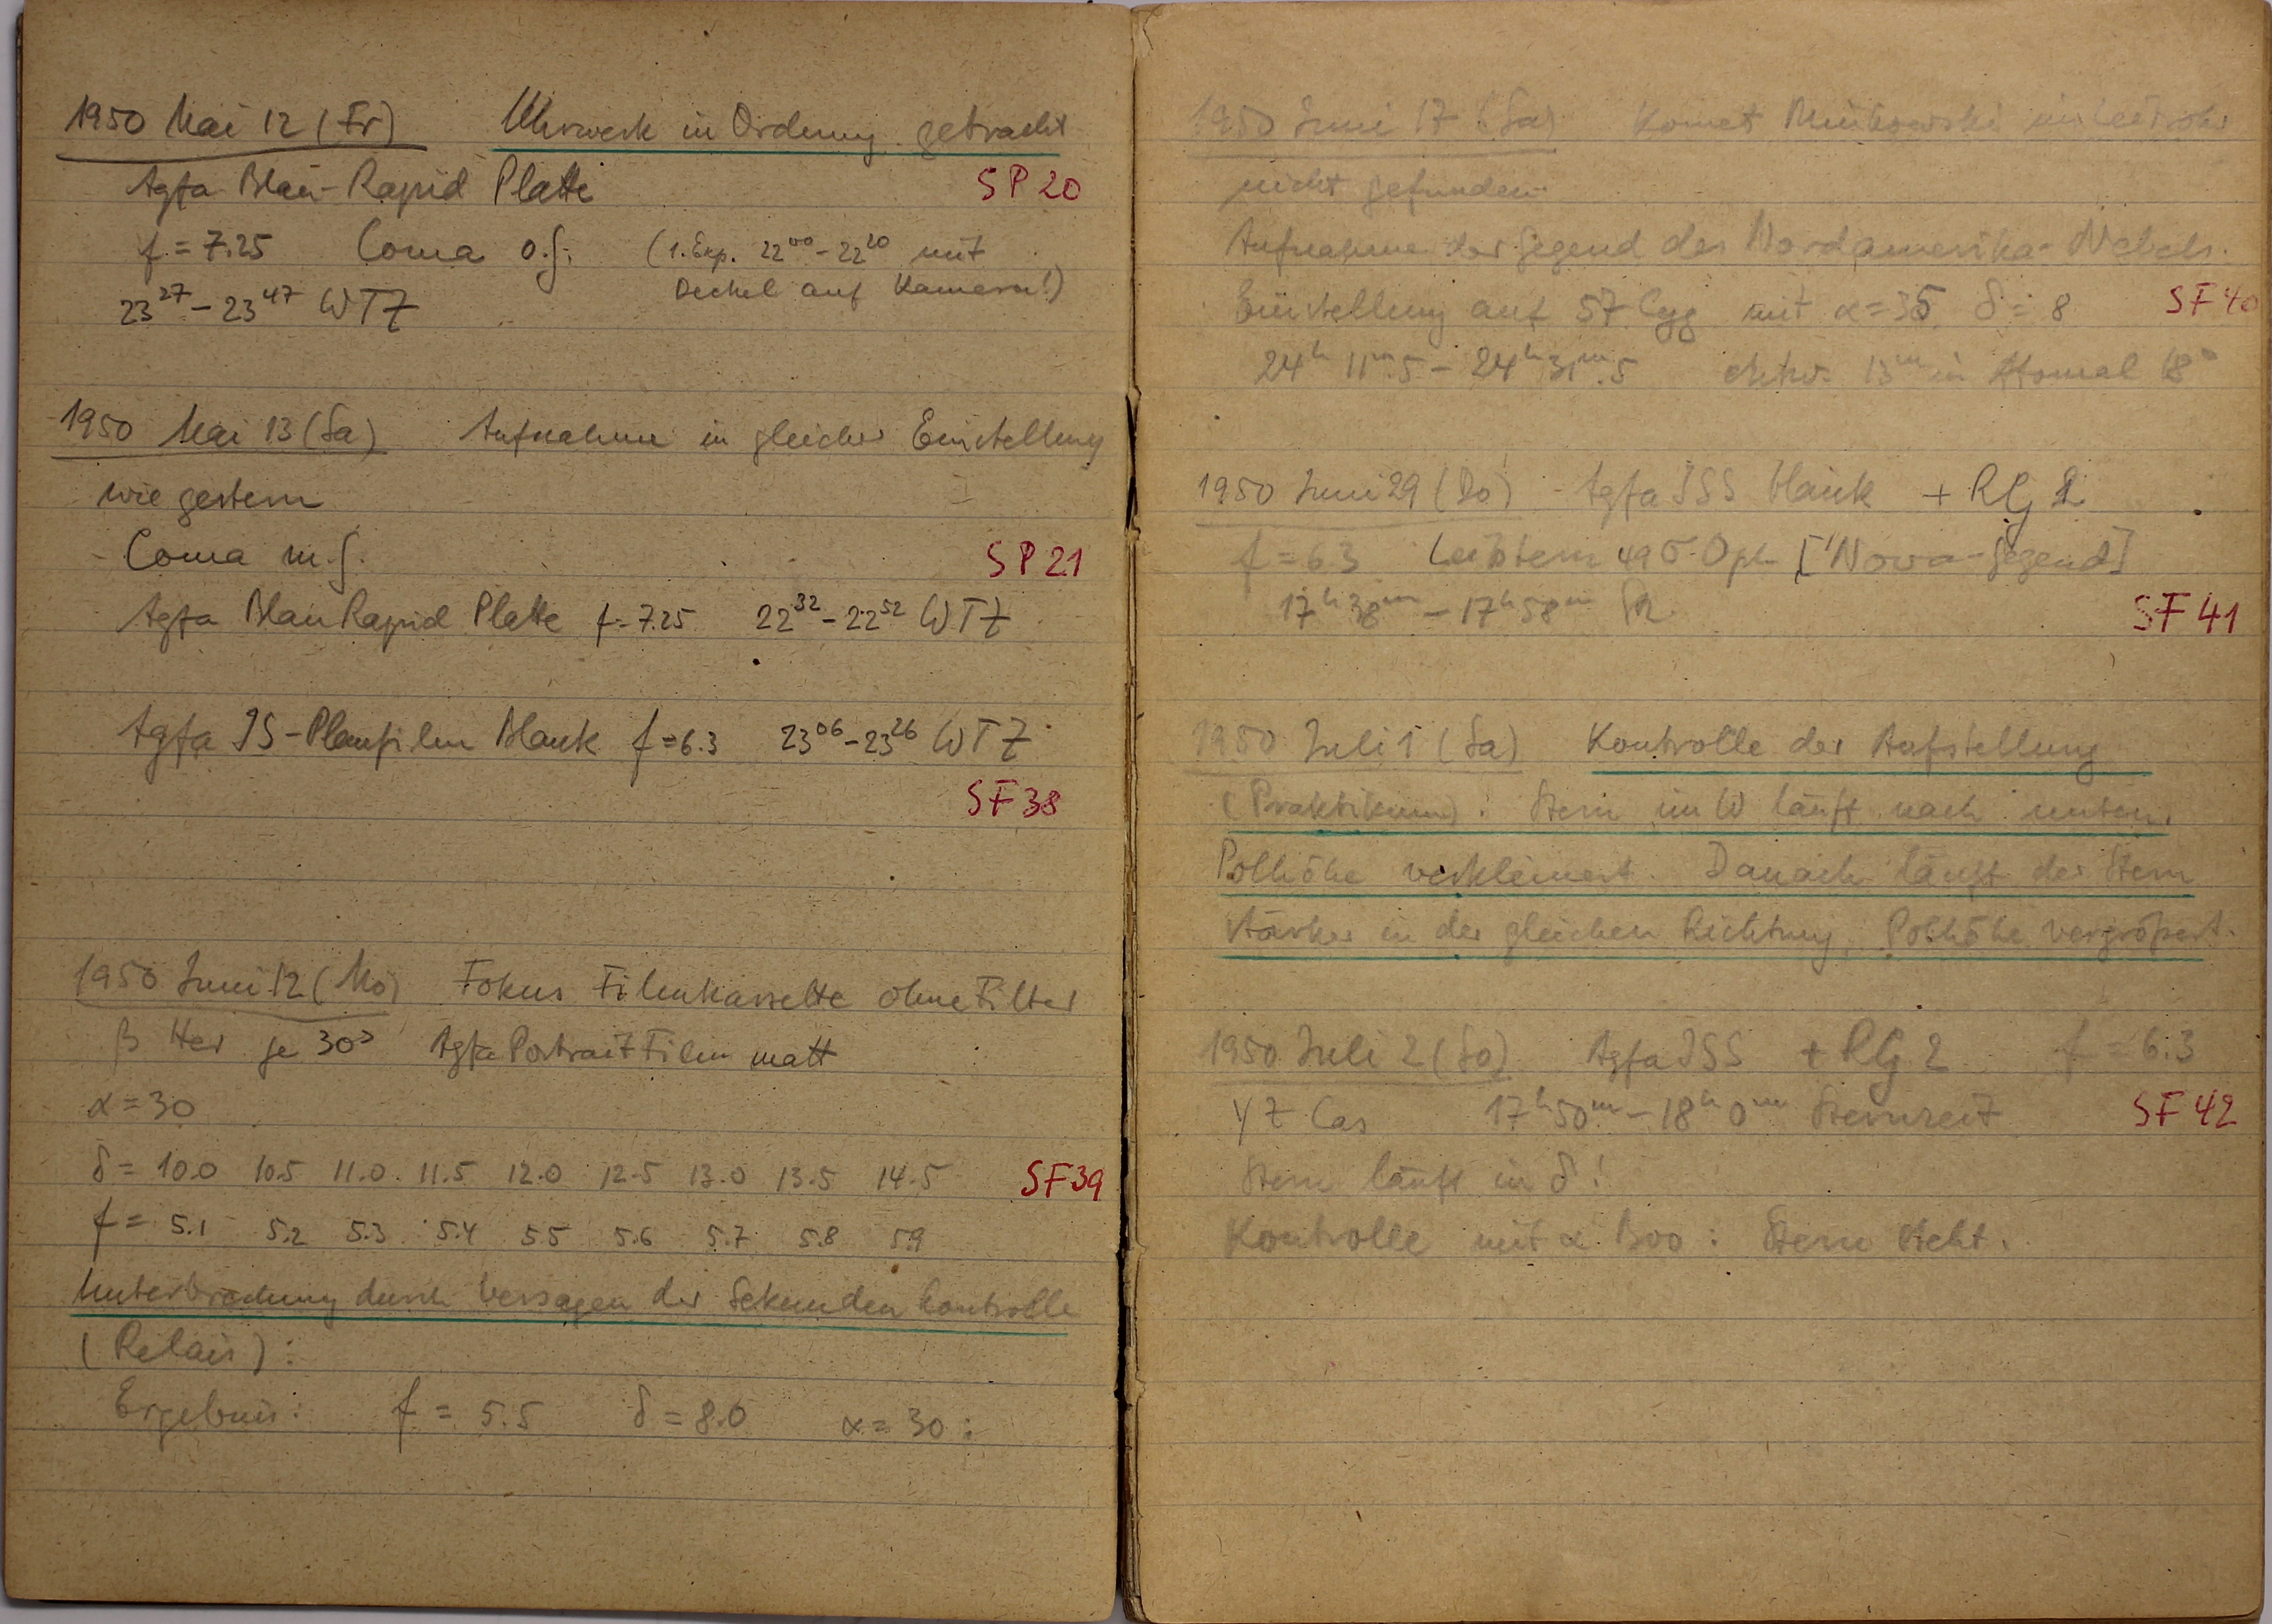 1950 Mai 12 (Fr) Uhrwerk in Ordnung gebracht
Agfa Blau-Rapid Platte SP 20
f = 7.25 Coma o.F. (1. Exp. 22⁰⁰ - 22²⁰ mit
Deckel auf Kamera!)
23²⁷ - 23⁴⁷ WTZ
1950 Mai 13 (Sa) Aufnahme in gleicher Einstellung
wie gestern
Coma m.F. SP 21
Agfa Blau Rapid Platte f = 7.25 22³² - 22⁵² WTZ
Agfa ISS-Planfilm blank f = 6.3 23⁰⁶ - 23²⁶ WTZ
SF 38
1950 Juni 12 (Mo) Fokus Filmkassette ohne Filter
β Her je 30ˢ Agfa Portrait Film matt
α = 30
δ = 10.0 10.5 11.0 11.5 12.0 12.5 13.0 13.5 14.5 SF 39
f = 5.1 5.2 5.3 5.4 5.5 5.6 5.7 5.8 5.9
Unterbrechung durch Versagen der Sekundenkontrolle
(Relais):
Ergebnis: f = 5.5 δ = 8.0 α = 30 :
1950 Juni 17 (Sa) Komet Minkowski im Leitrohr
nicht gefunden
Aufnahme der Gegend des Nordamerika-Nebels.
Einstellung auf 57 Cyg mit α = 35 δ = 8 SF 40
24ʰ 11ᵐ.5 - 24ʰ 31ᵐ.5 entw. 13ᵐ in Atomal 18°
1950 Juni 29 (Do) Agfa ISS blank + RG 2
f = 6.3 Leitstern 49 σ Oph ["Nova-Gegend]
17ʰ 38ᵐ - 17ʰ 58ᵐ SZ. SF 41
1950 Juli 1 (Sa) Kontrolle der Aufstellung
(Praktikum): Stern im W läuft nach unten.
Polhöhe verkleinert. Danach läuft der Stern
stärker in der gleichen Richtung. Polhöhe vergrößert.
1950 Juli 2 (So) Agfa ISS + RG 2 f = 6.3
YZ Cas 17ʰ 50ᵐ - 18ʰ 0ᵐ Sternzeit SF 42
Stern läuft in δ!
Kontrolle mit α Boo: Stern steht.